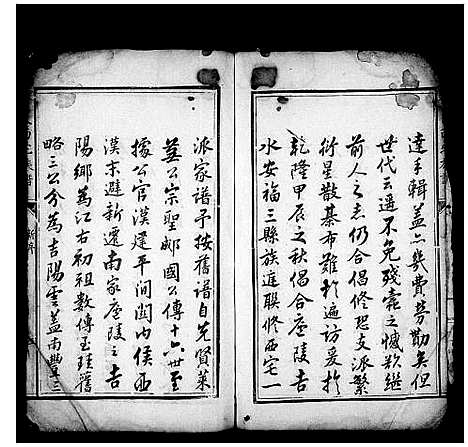 達手輯蓋亦幾費苦勤矣但
世代云遥不免殘竄之憾欲繼
前人之志仍合倡修恐支派繁
衍星散棊布雖於遍訪爰於
乾隆甲辰之秋倡合廬陵吉
水安福三縣族庭聯修西宅一
派家譜予按舊譜自先賢萊
蕪公宗聖郕國公傳十六世至
據公官漢建平間関内侯西
漢末避新遷南家廬陵之吉
陽鄉為江右初祖數傳玉珪舊
略三公分為吉陽雲蓋南豐三